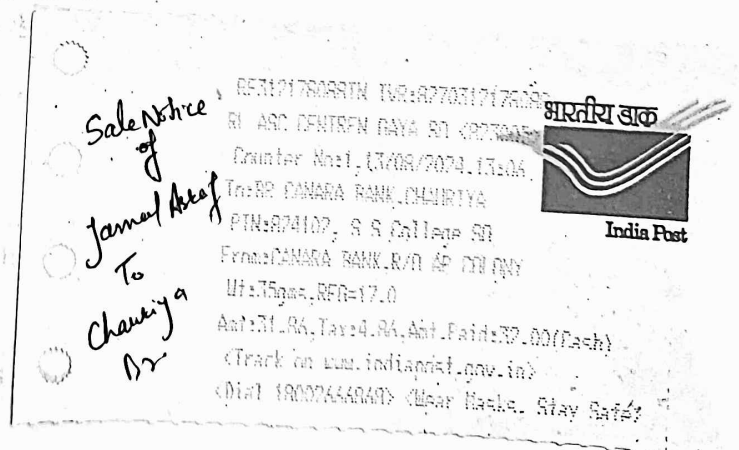 Sale Notice
of
Jamal Asraf
To
Chauriya
Br
RL ARC CENTREN GAYA SO
Counter No:1,13/08/2024,13:06
To:BR CANARA BANK,CHAURIYA
PIN:824102, S S College SO
From:CANARA BANK,R/O AP COLONY
Wt:35gms,REG=17.0
Amt:31.86,Tax:4.86,Amt.Paid:37.00(Cash)
<Track on www.indiapost.gov.in>
<Dial 18002666868> <Wear Masks, Stay Safe>
भारतीय डाक
India Post